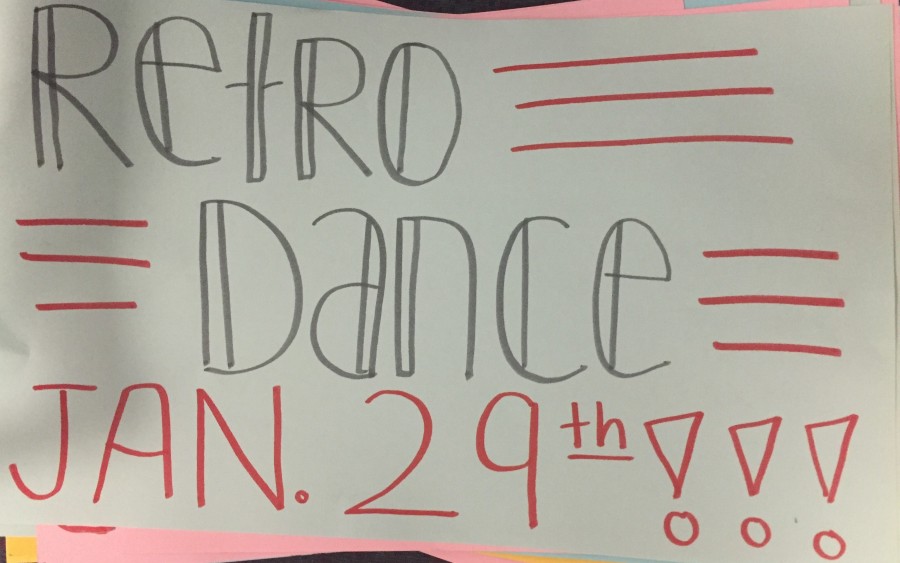 Retro
Dance
JAN. 29th!!!